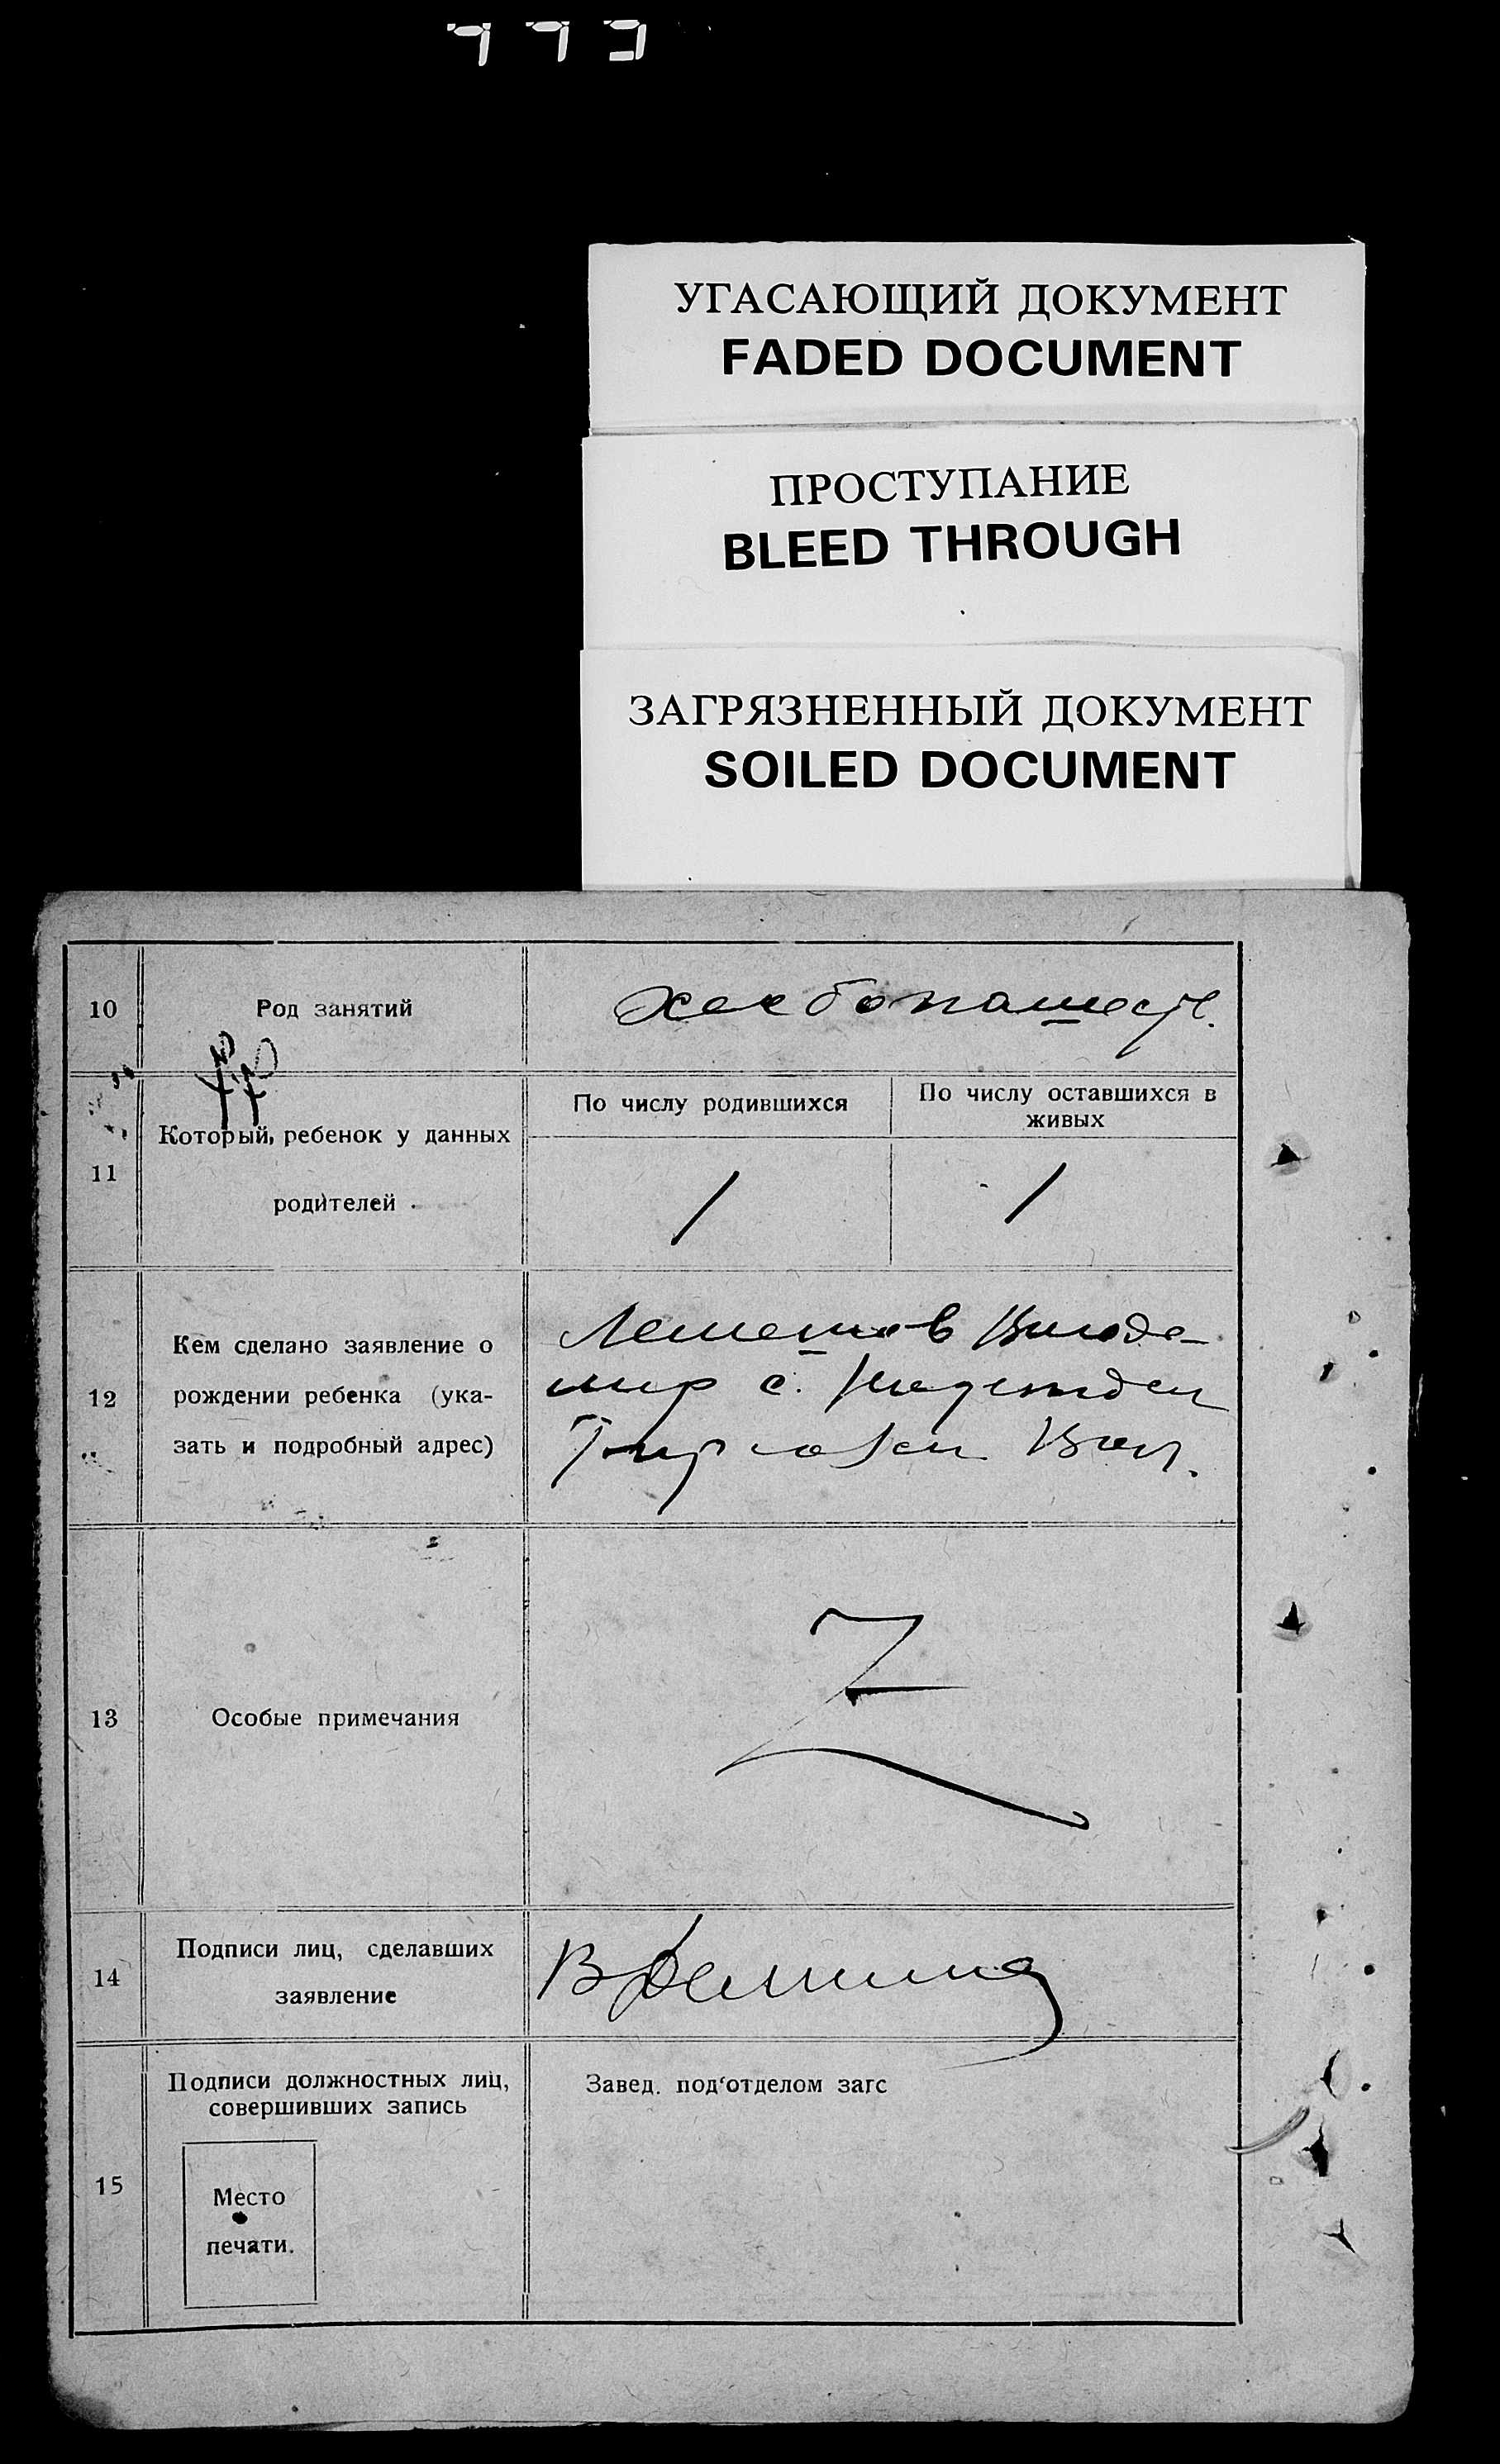 УГАСАЮЩИЙ ДОКУМЕНТ
FADED DOCUMENT
ПРОСТУПАНИЕ
BLEED THROUGH
ЗАГРЯЗНЕННЫЙ ДОКУМЕНТ
SOILED DOCUMENT
10
Род занятий
хлебопашест.
11
Который ребенок у данных
родителей
По числу родившихся
По числу оставшихся в
живых
1
1
12
Кем сделано заявление о
рождении ребенка (ука-
зать и подробный адрес)
Влоди-
мир с.
Вол.
13
Особые примечания
Z
14
Подписи лиц, сделавших
заявление
15
Подписи должностных лиц,
совершивших запись
Место
печати.
Завед. под'отделом загс